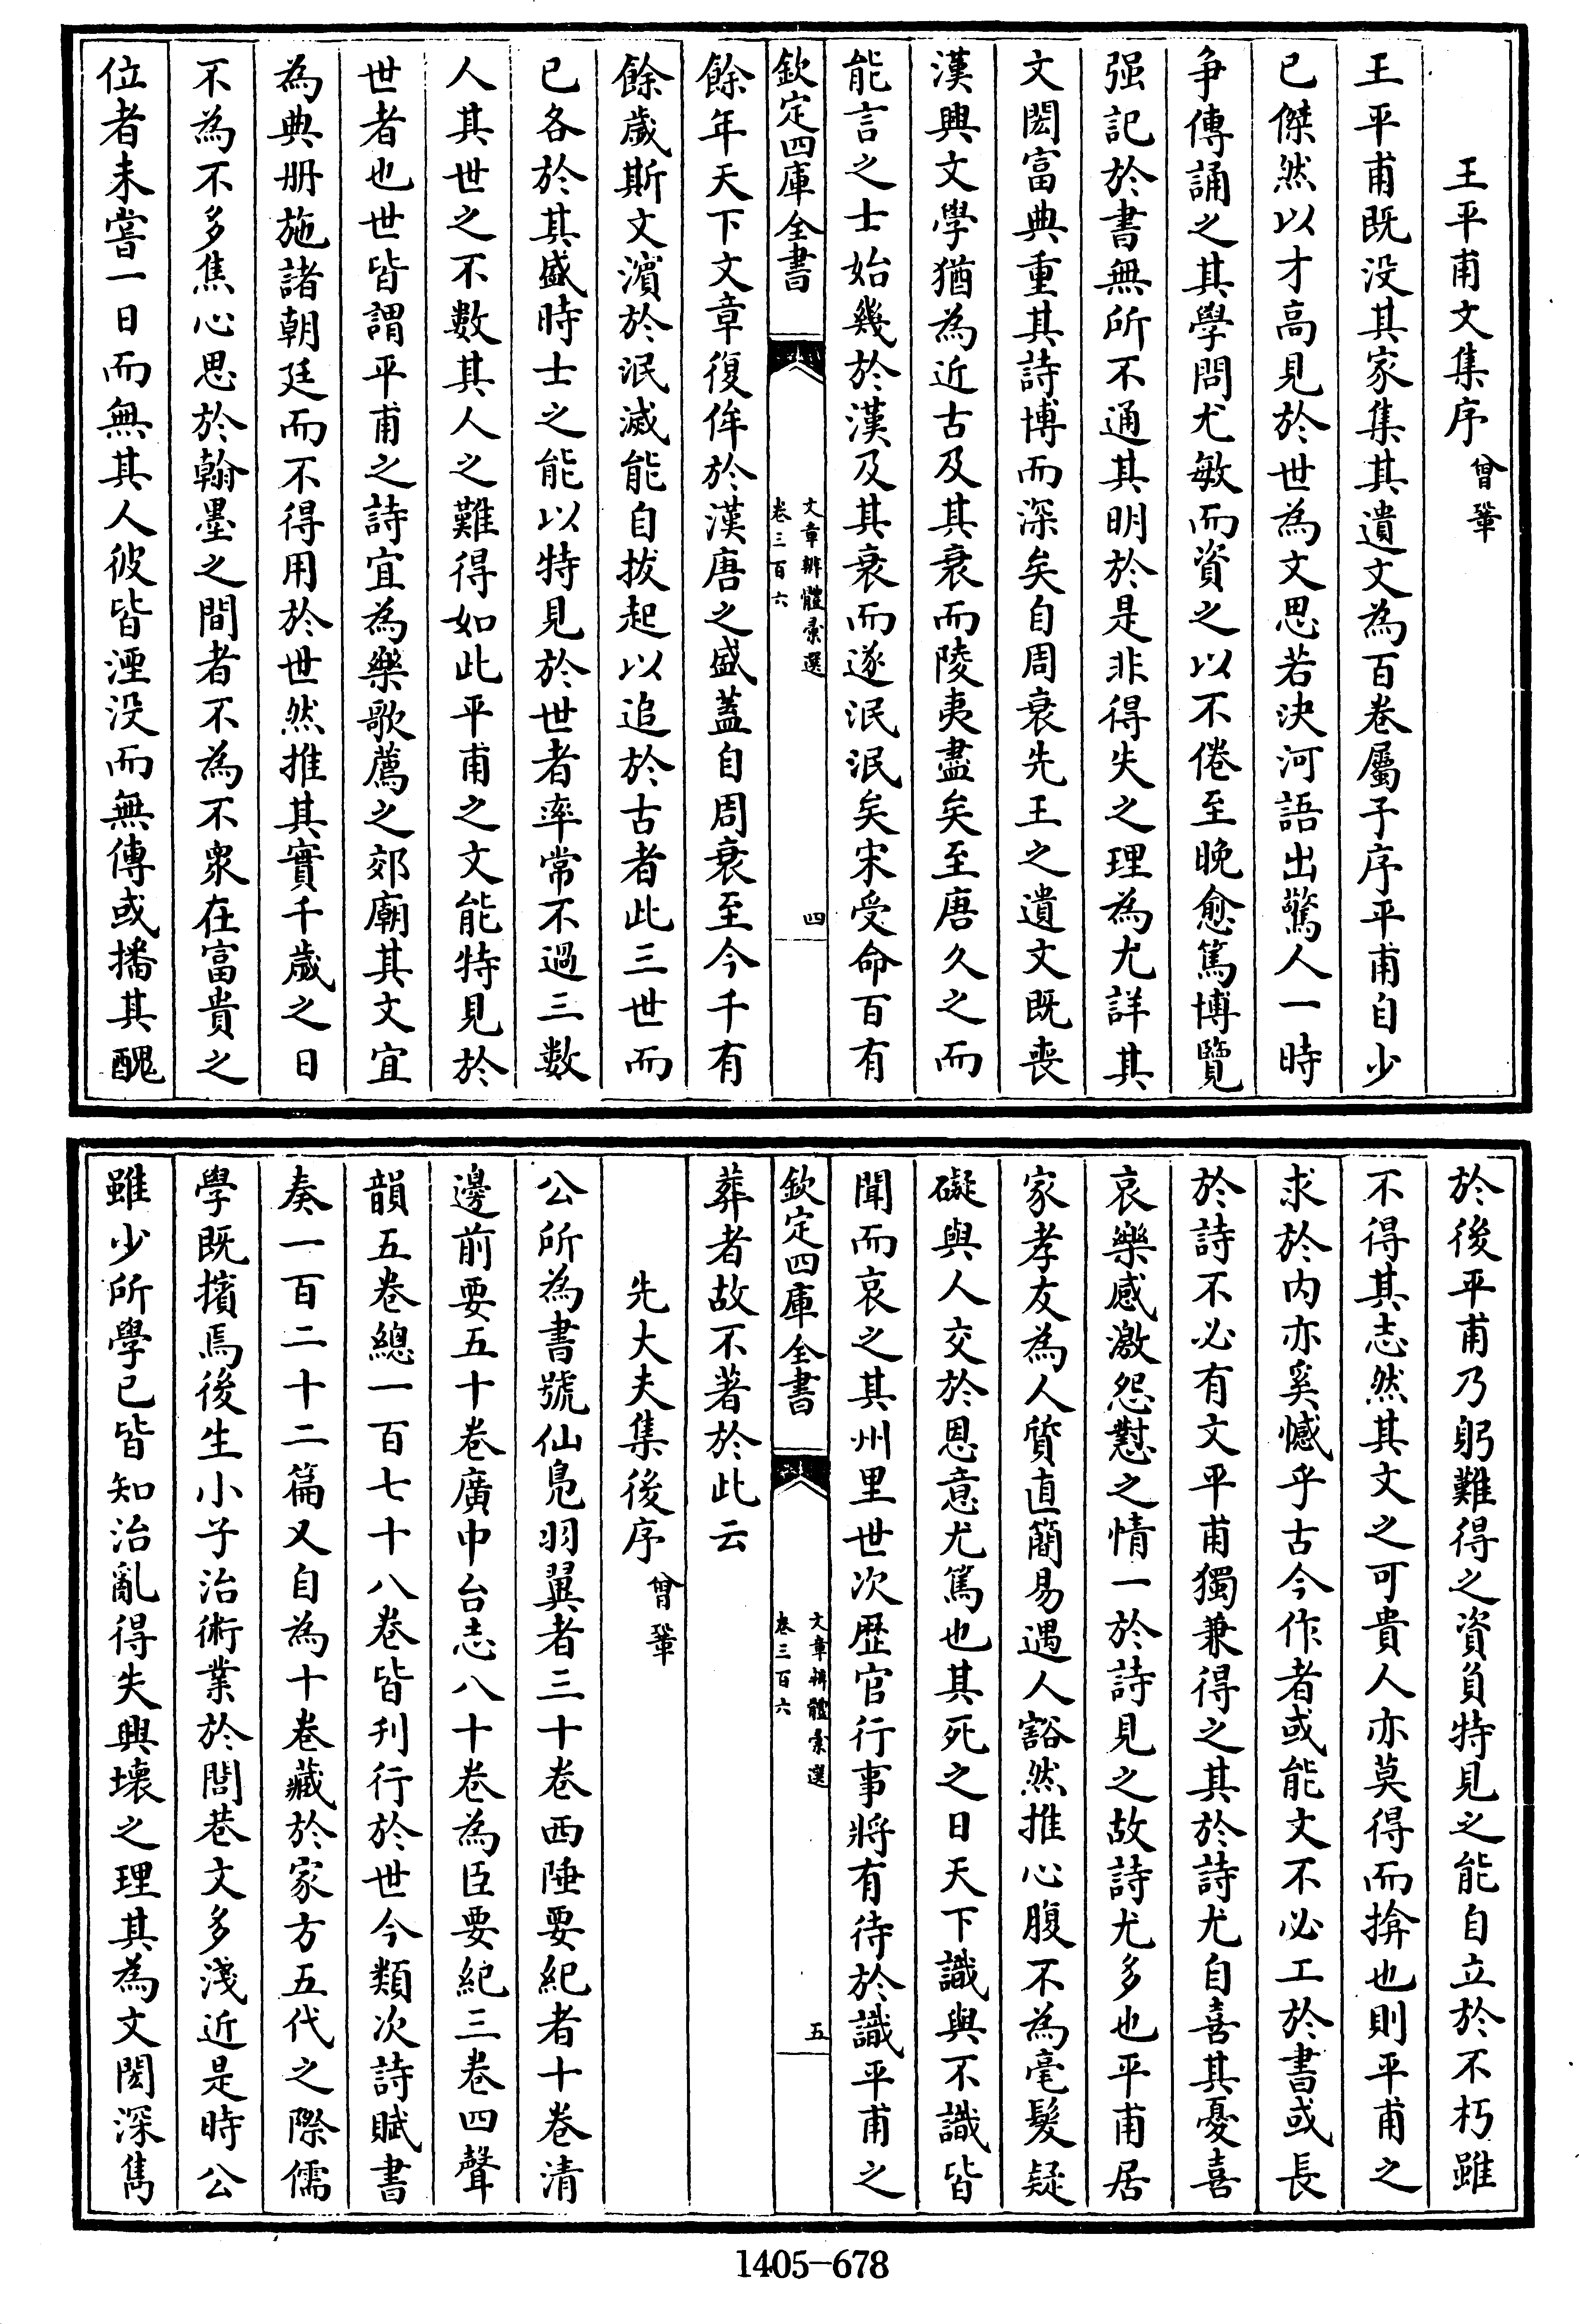 王平甫文集序曾鞏
王平甫既没其家集其遺文為百卷屬予序平甫自少
已傑然以才高見於世為文思若決河語出驚人一時
争傳誦之其學問尤敏而資之以不倦至晚愈篤博覽
强記於書無所不通其明於是非得失之理為尤詳其
文閎富典重其詩博而深矣自周衰先王之遺文既喪
漢興文學猶為近古及其衰而陵夷盡矣至唐久之而
能言之士始幾於漢及其衰而遂泯泯矣宋受命百有
欽定四庫全書
文章辨體彙選
卷三百六
四
餘年天下文章復侔於漢唐之盛蓋自周衰至今千有
餘歲斯文濱於泯滅能自拔起以追於古者此三世而
已各於其盛時士之能以特見於世者率常不過三數
人其世之不數其人之難得如此平甫之文能特見於
世者也世皆謂平甫之詩宜為樂歌薦之郊廟其文宜
為典册施諸朝廷而不得用於世然推其實千歲之日
不為不多焦心思於翰墨之間者不為不衆在富貴之
位者未嘗一日而無其人彼皆湮没而無傳或播其醜
於後平甫乃躬難得之資負特見之能自立於不朽雖
不得其志然其文之可貴人亦莫得而揜也則平甫之
求於内亦奚憾乎古今作者或能文不必工於書或長
於詩不必有文平甫獨兼得之其於詩尤自喜其憂喜
哀樂感激怨懟之情一於詩見之故詩尤多也平甫居
家孝友為人質直簡易遇人豁然推心腹不為毫髮疑
礙與人交於恩意尤篤也其死之日天下識與不識皆
聞而哀之其州里世次歷官行事將有待於識平甫之
欽定四庫全書
文章辨體彙選
卷三百六
五
葬者故不著於此云
先大夫集後序曾鞏
公所為書號仙凫羽翼者三十卷西陲要紀者十卷清
邊前要五十卷廣中台志八十卷為臣要紀三卷四聲
韻五卷總一百七十八卷皆刊行於世今類次詩賦書
奏一百二十二篇又自為十卷藏於家方五代之際儒
學既擯焉後生小子治術業於閭巷文多淺近是時公
雖少所學已皆知治亂得失興壞之理其為文閎深雋
1405-678